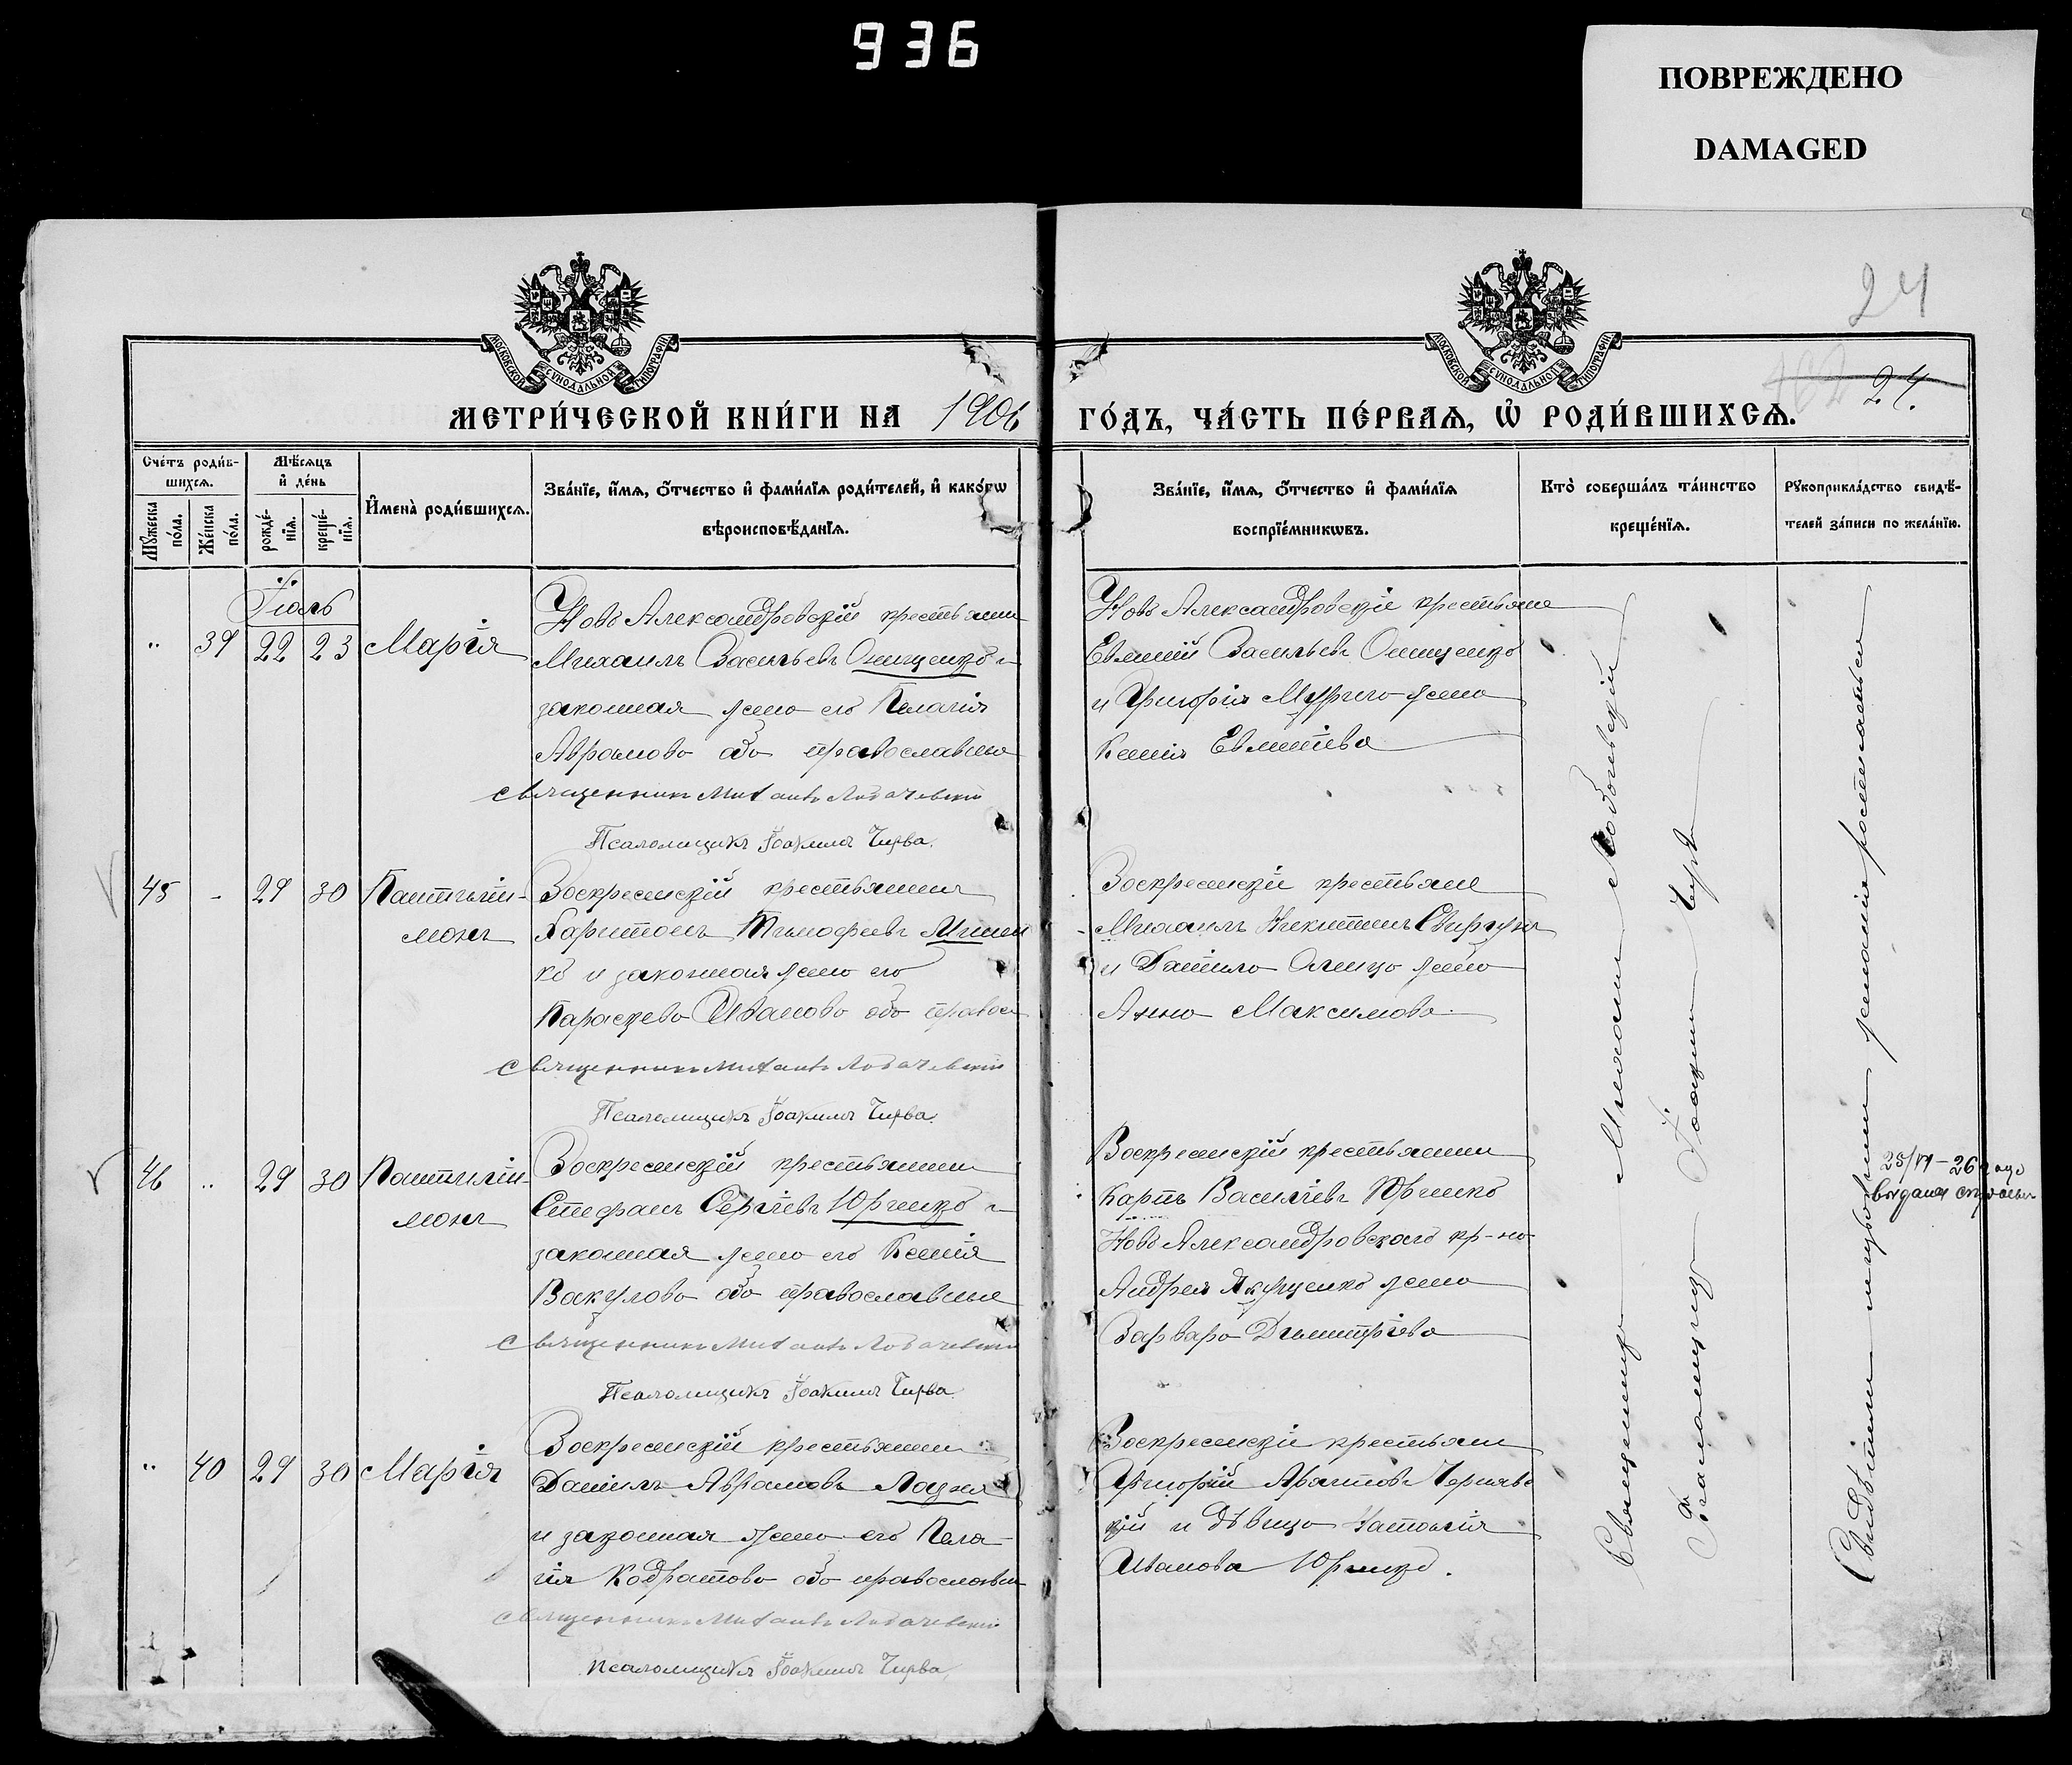 936
ПОВРЕЖДЕНО
DAMAGED
24
24.
МОСКОВСКОЙ СУНОДАЛЬНОЙ ТИПОГРАФІИ
МОСКОВСКОЙ СУНОДАЛЬНОЙ ТИПОГРАФІИ
МЕТРИ́ЧЕСКОЙ КНИ́ГИ НА 1906
ГО́ДЪ, ЧА́СТЬ ПЕ́РВАЯ, Ѡ РОДИ́ВШИХСЯ.
Сче́тъ роди́в-
шихся.
Мꙋ́жеска по́ла.
Же́нска по́ла.
Мѣ́сяцъ и҆ де́нь
рожде́-
нїя.
креще́-
нїя.
И҆мена̀ роди́вшихся.
Зва́нїе, и҆́мя, ѻ҆́тчество и҆ фами́лїя роди́телей, и҆ како́гѡ
вѣроисповѣ́данїя.
Зва́нїе, и҆́мя, ѻ҆́тчество и҆ фами́лїя
воспрїе́мникѡвъ.
Кто̀ соверша́лъ та́инство
креще́нїя.
Рꙋкоприкла́дство свидѣ́-
телей за́писи по жела́нїю.
Іюль
" 39 22 23 Марія
Ново Александровскій крестьянин
Михаилъ Васильевъ Онищенко и
законная жена его Пелагія
Аврамова оба православные
Священникъ Михаилъ Лобачевскій
Псаломщикъ Іоакимъ Чирва.
Ново Александровскіе крестьяне
Евменій Васильевъ Онищенко
и Григорія жена
Ксенія Евменіева
45 - 29 30 Пантелеи-
монъ
Воскресенскій крестьянинъ
Харитонъ Тимофеевъ
ко и законная жена его
Параскева Иванова оба правосл
Священникъ Михаилъ Лобачевскій
Псаломщикъ Іоакимъ Чирва.
Воскресенскіе крестьяне
Михаилъ Никитинъ
и Данила жена
Анна Максимова.
46 " 29 30 Пантелеи-
монъ
Воскресенскій крестьянинъ
Стефанъ Сергіевъ Юрченко и
законная жена его Ксенія
Вакулова оба православные
Священникъ Михаилъ Лобачевскій
Псаломщикъ Іоакимъ Чирва.
Воскресенскій крестьянинъ
Карпъ Василіевъ Юрченко
Ново Александровскаго кр-на
Андрея жена
Варвара Димитріева
25/VI - 26 года
выдана справка
" 40 29 30 Марія
Воскресенскій крестьянин
Даніилъ Аврамовъ
и законная жена его Пела-
гія Кодратова оба православн
Священникъ Михаилъ Лобачевскій
Псаломщикъ Іоакимъ Чирва.
Воскресенскіе крестьяне
Григорій Чернявс
кій и дѣвица
Иванова Юрченко.
Священникъ Михаилъ Лобачевскій
Псаломщикъ Іоакимъ Чирва